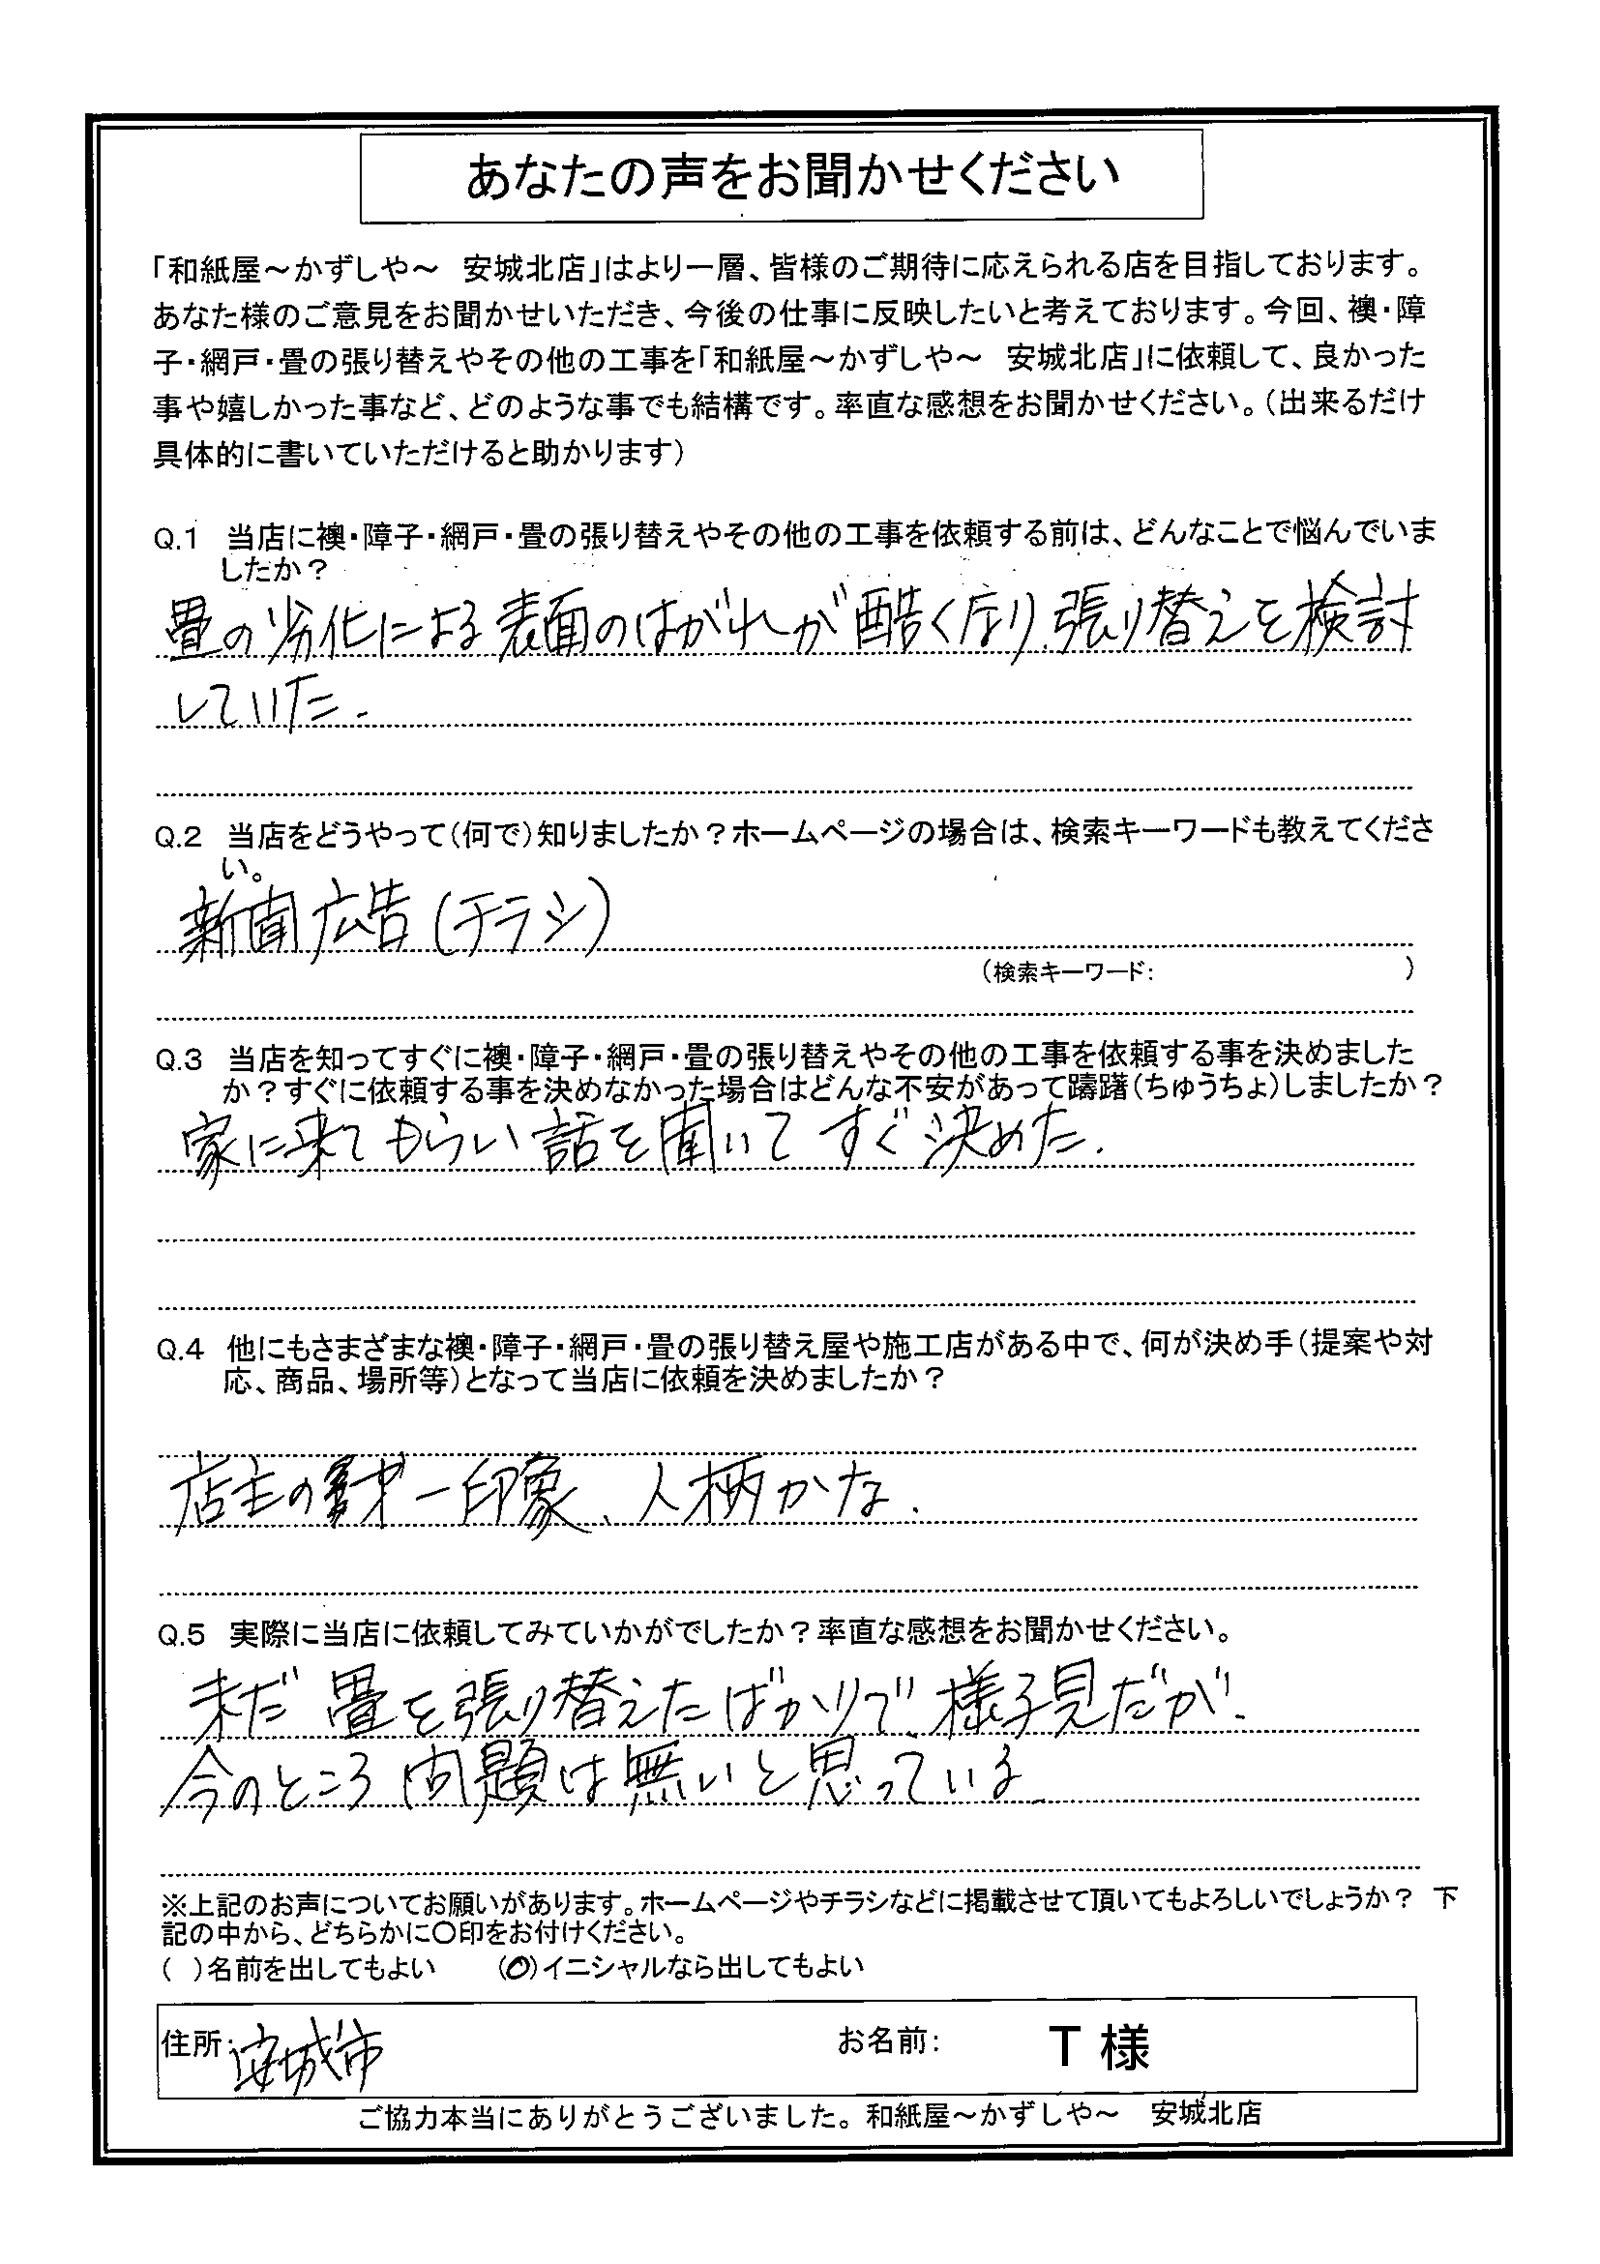 あなたの声をお聞かせください
「和紙屋～かずしや～　安城北店」はより一層、皆様のご期待に応えられる店を目指しております。
あなた様のご意見をお聞かせいただき、今後の仕事に反映したいと考えております。今回、襖・障
子・網戸・畳の張り替えやその他の工事を「和紙屋～かずしや～　安城北店」に依頼して、良かった
事や嬉しかった事など、どのような事でも結構です。率直な感想をお聞かせください。（出来るだけ
具体的に書いていただけると助かります）
Q.1　当店に襖・障子・網戸・畳の張り替えやその他の工事を依頼する前は、どんなことで悩んでいま
したか？
畳の劣化による表面のはがれが酷くなり、張り替えを検討
していた.
Q.2　当店をどうやって（何で）知りましたか？ホームページの場合は、検索キーワードも教えてくださ
い。
新聞広告（チラシ）
（検索キーワード：　　　　　　　　　　）
Q.3　当店を知ってすぐに襖・障子・網戸・畳の張り替えやその他の工事を依頼する事を決めました
か？すぐに依頼する事を決めなかった場合はどんな不安があって躊躇（ちゅうちょ）しましたか？
家に来てもらい話を聞いてすぐ決めた.
Q.4　他にもさまざまな襖・障子・網戸・畳の張り替え屋や施工店がある中で、何が決め手（提案や対
応、商品、場所等）となって当店に依頼を決めましたか？
店主の才一印象、人柄かな.
Q.5　実際に当店に依頼してみていかがでしたか？率直な感想をお聞かせください。
未だ畳を張り替えたばかりで、様子見だが、
今のところ問題は無いと思っている.
※上記のお声についてお願いがあります。ホームページやチラシなどに掲載させて頂いてもよろしいでしょうか？　下
記の中から、どちらかに〇印をお付けください。
（　）名前を出してもよい　　（〇）イニシャルなら出してもよい
住所：安城市　　お名前：　T 様
ご協力本当にありがとうございました。和紙屋～かずしや～　安城北店